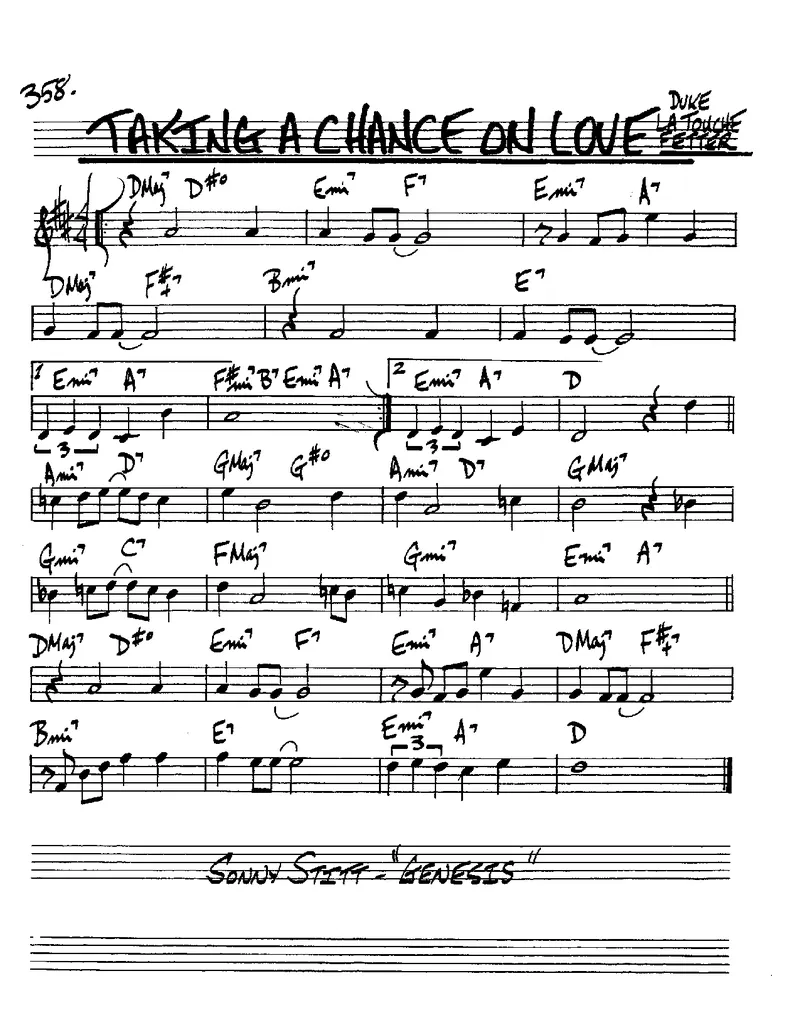 358.
TAKING A CHANCE ON LOVE
DUKE
LA TOUCHE
FETTER
DMaj7 D#o Emi7 F7 Emi7 A7
4/4
DMaj7 F#+7 Bmi7 E7
1 Emi7 A7 F#mi7 B7 Emi7 A7 2 Emi7 A7 D
3 3
Ami7 D7 GMaj7 G#o Ami7 D7 GMaj7
Gmi7 C7 FMaj7 Gmi7 Emi7 A7
DMaj7 D#o Emi7 F7 Emi7 A7 DMaj7 F#+7
Bmi7 E7 Emi7 A7 D
3
SONNY STITT - "GENESIS"